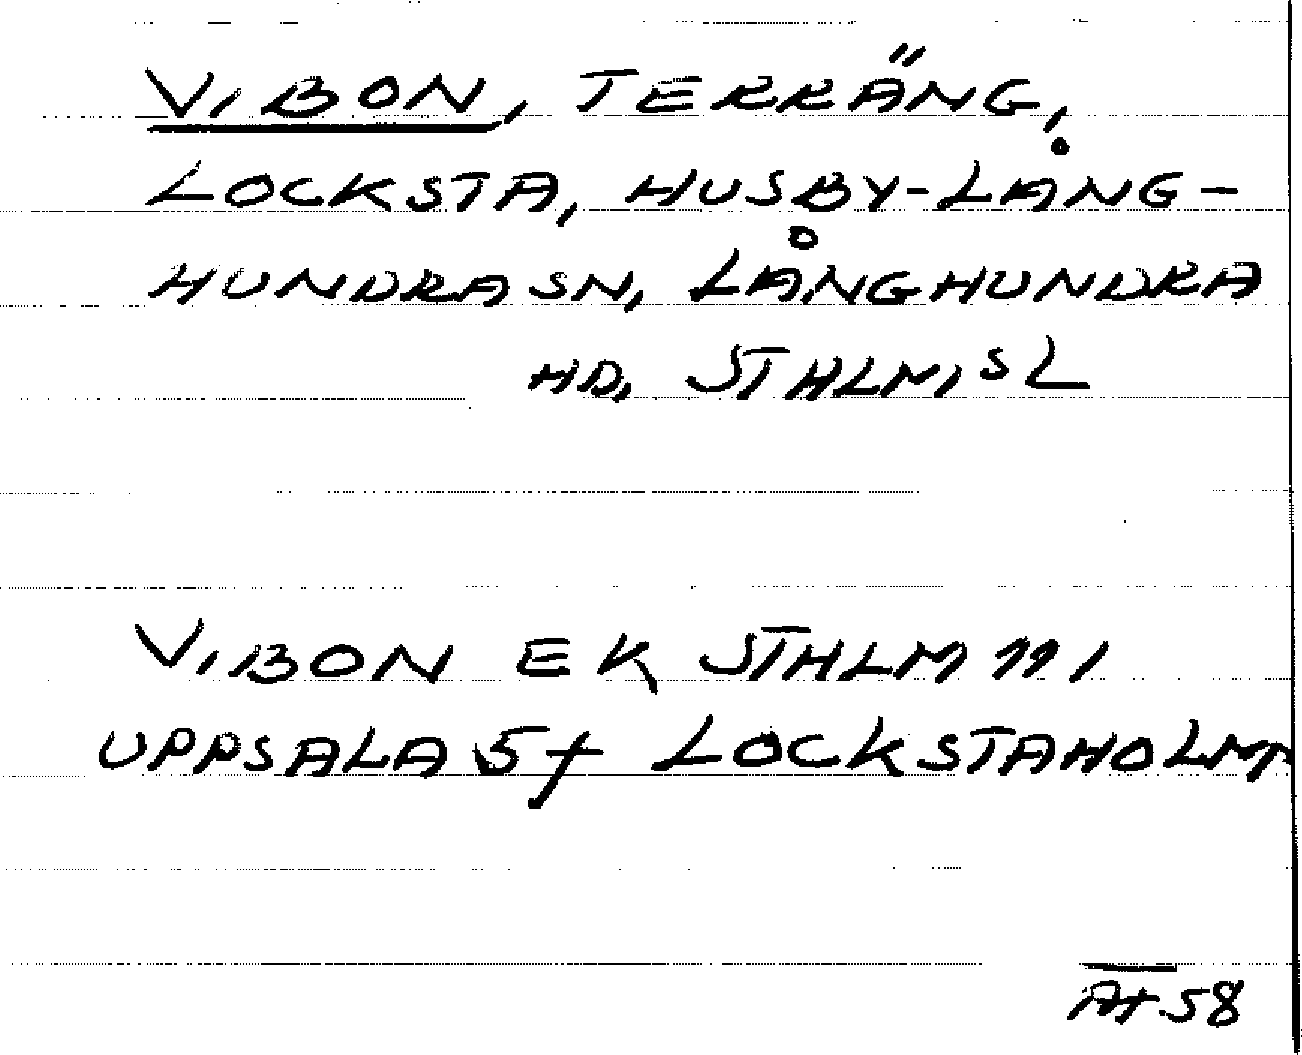 VIBON, TERRÄNG,
LOCKSTA, HUSBY-LÅNG-
HUNDRA SN, LÅNGHUNDRA
HD, STHLM, SL
VIBON EK STHLM 111
UPPSALA 5f LOCKSTAHOLM
58